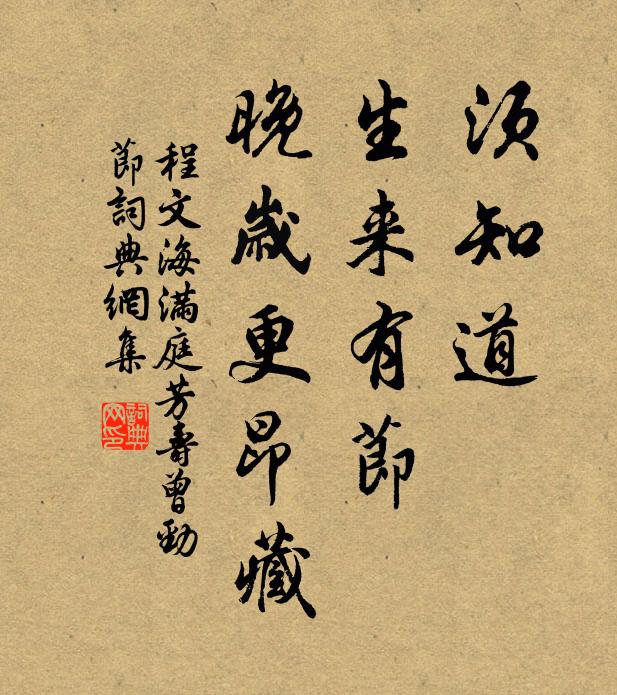 须知道
生来有莭
晚歲更昂藏
程文海满庭芳壽曾勁
莭詞典網集
詞典网印